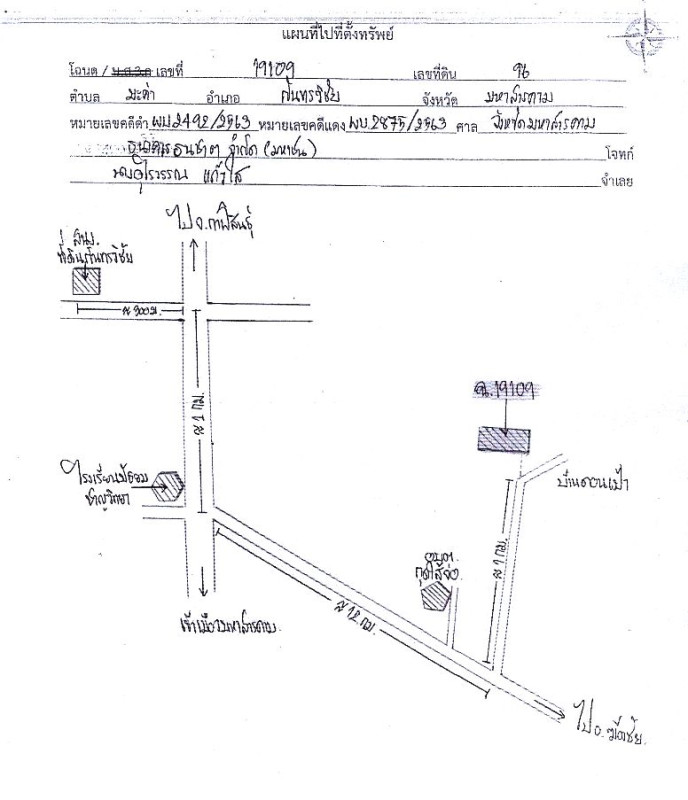 แผนที่ไปที่ตั้งทรัพย์
โฉนด / น.ส.3 ก เลขที่ 19109 เลขที่ดิน
ตำบล มะค่า อำเภอ กันทรวิชัย จังหวัด มหาสารคาม
หมายเลขคดีดำ ผบ2492/2563 หมายเลขคดีแดง ผบ.2875/2563 ศาล จังหวัดมหาสารคาม
ธนาคารธนชาต จำกัด (มหาชน) โจทก์
แก้วใส จำเลย
ไป จ.กาฬสินธุ์
สนง.
ที่ดินกันทรวิชัย
≈ 300 ม.
≈ 1 กม.
ฉ.19109
โรงเรียนมัธยม
บ้านดอนเป้า
อบต.
กุดใส้จ่อ
≈ 1 กม.
≈ 12 กม.
เข้าเมืองมหาสารคาม
ไป อ.